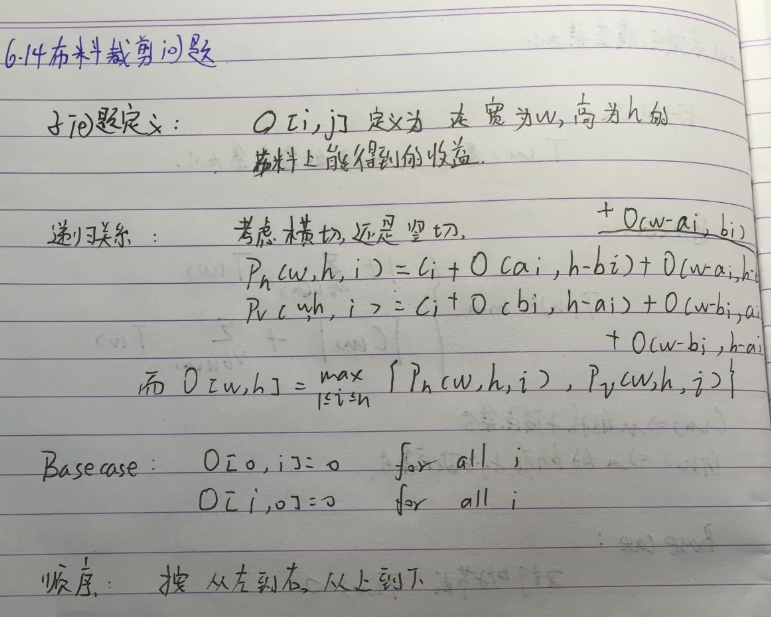 6.14 布料裁剪问题
子问题定义： O[i,j] 定义为 在 宽为w,高为h的
布料上能得到的收益.
递归关系： 考虑横切,还是竖切.
+ O(w-ai, bi)
Ph(w,h,i) = Ci + O(ai, h-bi) + O(w-ai, h-
Pv(w,h,i) = Ci + O(bi, h-ai) + O(w-bi, ai
+ O(w-bi, h-ai
而 O[w,h] = max {Ph(w,h,i), Pv(w,h,i)}
1≤i≤n
Base case: O[0,i]=0 for all i
O[i,0]=0 for all i
顺序： 按 从左到右,从上到下